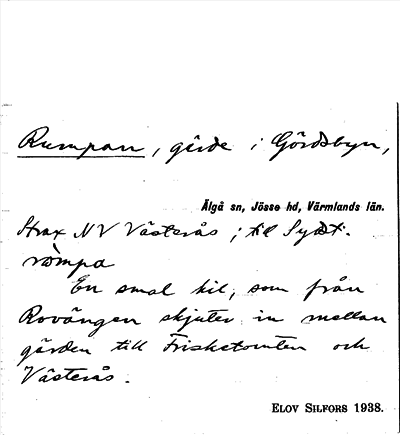 Rumpan, gärde i Gördsbyn,
Älgå sn, Jösse hd, Värmlands län.
Strax NV Västerås; til Sydt.
rompa
En smal kil, som från
Rovängen skjuter in mellan
gärden till Frisketomten och
Västerås.
ELOV SILFORS 1938.